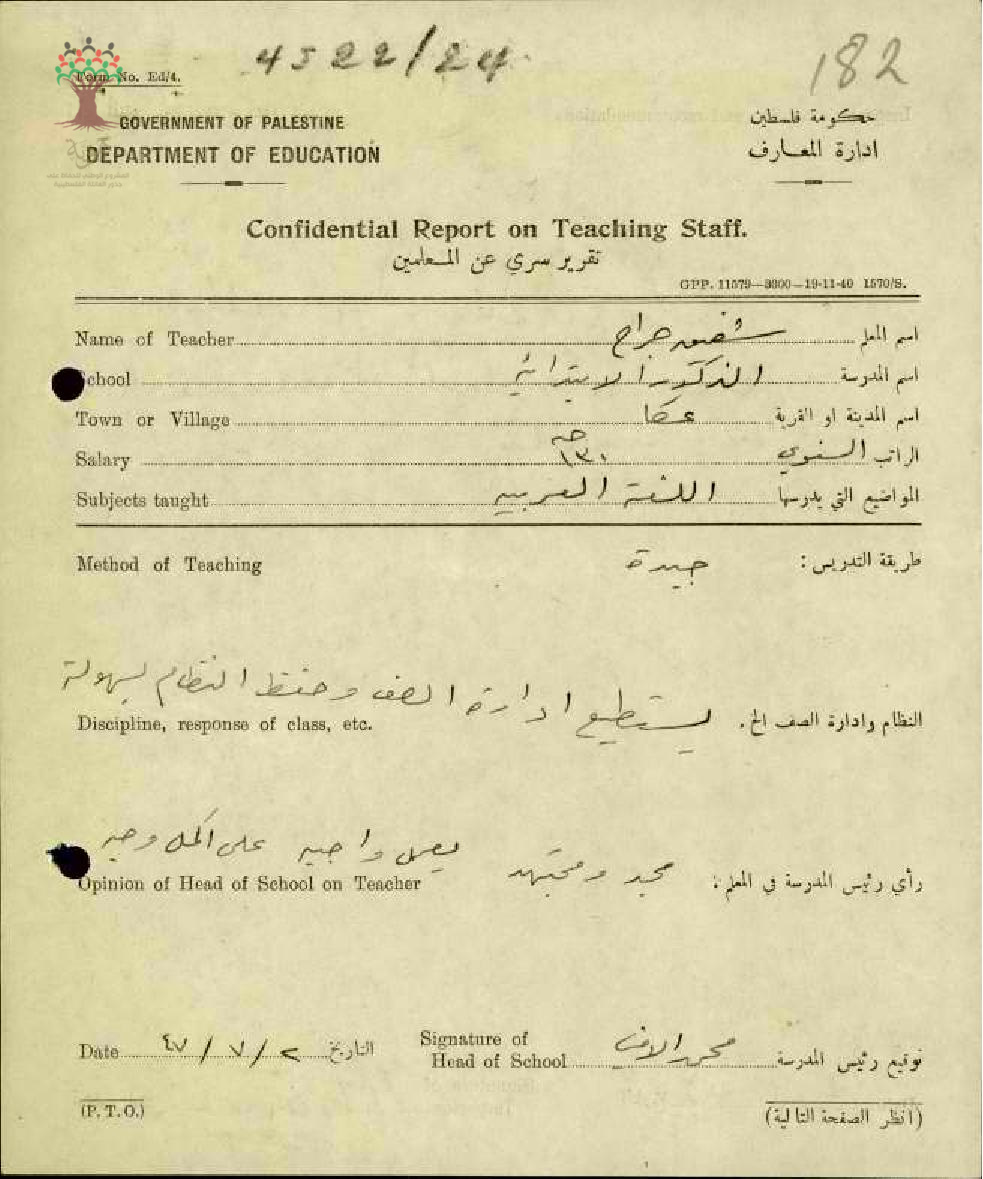 4522/24
182
Form No. Ed/4.
GOVERNMENT OF PALESTINE
حكومة فلسطين
DEPARTMENT OF EDUCATION
ادارة المعارف
Confidential Report on Teaching Staff.
تقرير سري عن المعلمين
GPP. 11579—3300—19-11-40 1570/S.
Name of Teacher شفيق جراح اسم المعلم
School الذكور الابتدائية اسم المدرسة
Town or Village عكا اسم المدينة او القرية
Salary ١٣٠ الراتب السنوي
Subjects taught اللغة العربيه المواضيع التي يدرسها
Method of Teaching جيدة طريقة التدريس :
يستطيع ادارة الصف وحفظ النظام بسهولة
Discipline, response of class, etc. النظام وادارة الصف الخ.
مجد ومجتهد يعمل واجبه على اكمل وجه
Opinion of Head of School on Teacher رأي رئيس المدرسة في المعلم :
Date ٤٧/٧/٢ التاريخ
Signature of Head of School محمد توقيع رئيس المدرسة
(P. T. O.) (انظر الصفحة التالية)